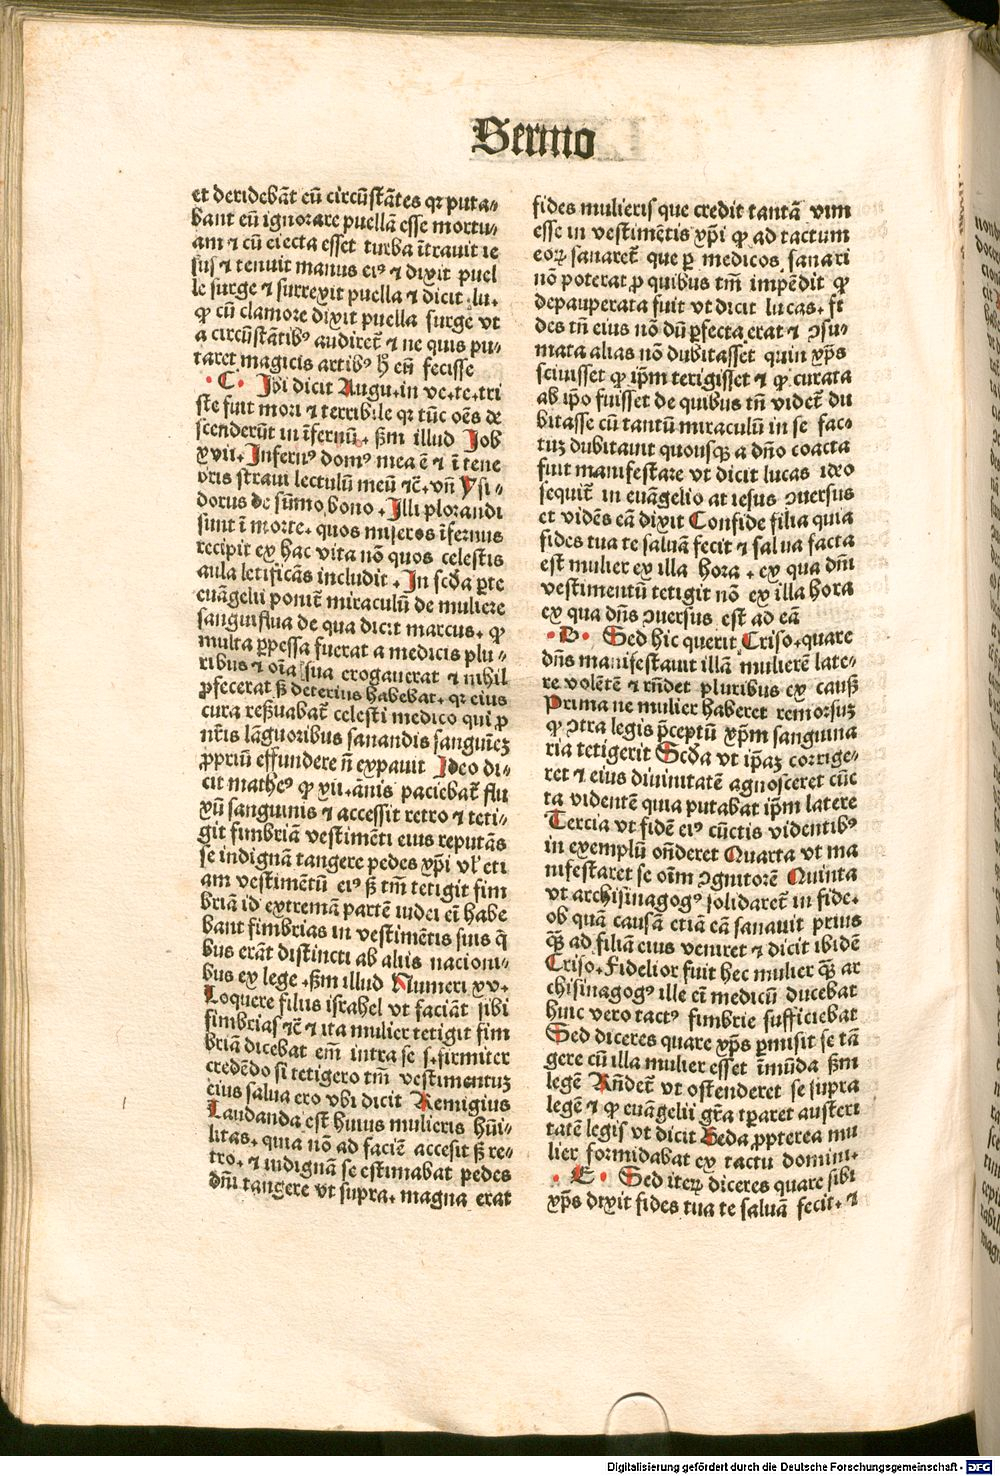 Sermo
et deridebāt eū circūstātes qꝛ puta⸗
bant eū ignorare puellā esse mortu⸗
am ⁊ cū eiecta esset turba ītrauit ie
sus ⁊ tenuit manus eiꝰ ⁊ dixit puel
le surge ⁊ surrexit puella ⁊ dicit lu.
ꝙ cū clamore dixit puella surge vt
a circūstātibꝰ audiret̄ ⁊ ne quis pu⸗
taret magicis artibꝰ h̄ eū fecisse
.C. Ibi dicit Augu.in ve.te.tri
ste fuit mori ⁊ terribile qꝛ tūc oēs de
scenderūt in īfernū. ẞm illud Job
xvii. Infernꝰ domꝰ mea ē ⁊ ī tene
bris straui lectulū meū ⁊ē.vn̄ Ysi⸗
dorus de sūmo bono. Illi plorandi
sunt ī morte. quos miseros īfernus
recipit ex hac vita nō quos celestis
aula letificās includit. In scd̄a ꝑte
euāgelii ponit̄ miraculū de muliere
sanguiflua de qua dicit marcus. ꝙ
multa ꝑpessa fuerat a medicis plu⸗
ribus ⁊ oīa sua erogauerat ⁊ nihil
ꝓfecerat ẞ deterius habebat. qꝛ eius
cura reẞuabat̄ celesti medico qui ꝓ
nr̄is lāguoribus sanandis sanguīeꝫ
ꝓpriū effundere n̄ expauit Ideo di⸗
cit matheꝰ ꝙ xii.ānis paciebat̄ flu
xū sanguinis ⁊ accessit retro ⁊ teti⸗
git fimbriā vestimēti eius reputās
se indignā tangere pedes xp̄i vl̄ eti
am vestimētū eiꝰ ẞ tm̄ tetigit fim
briā id̄ extremā partē iudei eī habe
bant fimbrias in vestimētis suis q̄
bus erāt distincti ab aliis nacioni⸗
bus ex lege .ẞm illud Numeri xv.
Loquere filiis israhel vt faciāt sibi
fimbrias ⁊ē ⁊ ita mulier tetigit fim
briā dicebat em̄ intra se s.firmiter
credēdo si tetigero tm̄ vestimentuꝫ
eius salua ero vbi dicit Remigius
Laudanda est huius mulieris hūi⸗
litas. quia nō ad faciē accesit ẞ re⸗
tro. ⁊ indignā se estimabat pedes
dn̄i tangere vt supra. magna erat
fides mulieris que credit tantā vim
esse in vestimētis xp̄i ꝙ ad tactum
eoꝝ sanaret̄ que ꝑ medicos sanari
nō poterat ꝓ quibus tm̄ impēdit ꝙ
depauperata fuit vt dicit lucas. fi
des tn̄ eius nō dū ꝑfecta erat ⁊ ꝯsu⸗
mata alias nō dubitasset quin xp̄s
sciuisset ꝙ ip̄m terigisset ⁊ ꝙ curata
ab ip̄o fuisset de quibus tn̄ videt̄ du
bitasse cū tantū miraculū in se fac⸗
tuꝫ dubitauit quousqꝫ a dn̄o coacta
fuit manifestare vt dicit lucas ideo
sequit̄ in euāgelio at iesus ꝯuersus
et vidēs eā dixit Confide filia quia
fides tua te saluā fecit ⁊ salua facta
est mulier ex illa hora . ex qua dn̄i
vestimentū tetigit nō ex illa hora
ex qua dn̄s ꝯuersus est ad eā
.D. Sed hic querit Criso.quare
dn̄s manifestauit illā mulierē late⸗
re volētē ⁊ rn̄det pluribus ex cauẞ
Prima ne mulier haberet remorsuꝫ
ꝙ ꝯtra legis p̄ceptū xp̄m sanguina
ria tetigerit Scd̄a vt ip̄aꝫ corrige⸗
ret ⁊ eius diuinitatē agnosceret cūc
ta videntē quia putabat ip̄m latere
Tercia vt fidē eiꝰ cūctis videntibꝰ
in exemplū on̄deret Quarta vt ma
nifestaret se oīm ꝯgnitorē Quinta
vt archisinagogꝰ solidaret̄ in fide.
ob quā causā etiā eā sanauit prius
qꝫ̄ ad filiā eius veniret ⁊ dicit ibidē
Criso.Fidelior fuit hec mulier qꝫ̄ ar
chisinagogꝰ ille eī medicū ducebat
huic vero tactꝰ fimbrie sufficiebat
Sed diceres quare xp̄s ꝑmisit se tā
gere cū illa mulier esset īmūda ẞm
legē Rn̄det̄ vt ostenderet se supra
legē ⁊ ꝙ euāgelii gr̄a tꝑaret austeri
tatē legis vt dicit Beda ꝓpterea mu
lier formidabat ex tactu domini.
.E. Sed iteꝝ diceres quare sibi
xp̄s dixit fides tua te saluā fecit. ⁊
Digitalisierung gefördert durch die Deutsche Forschungsgemeinschaft - DFG